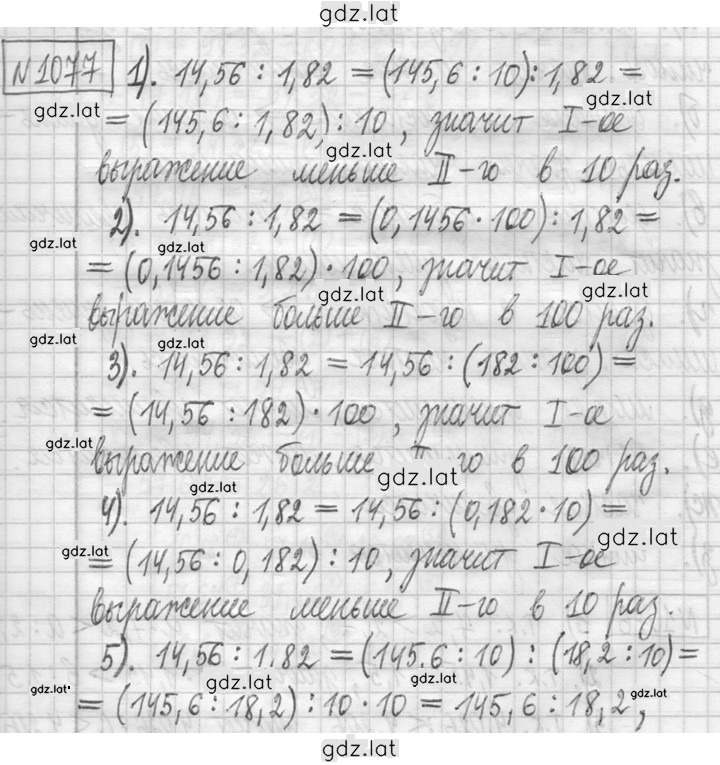 gdz.lat
№ 1077 1). 14,56 : 1,82 = (145,6 : 10) : 1,82 =
gdz.lat
gdz.lat
= (145,6 : 1,82) : 10, значит I-ое
gdz.lat
выражение меньше II-го в 10 раз.
2). 14,56 : 1,82 = (0,1456 · 100) : 1,82 =
gdz.lat
gdz.lat
= (0,1456 : 1,82) · 100, значит I-ое
gdz.lat
gdz.lat
выражение больше II-го в 100 раз.
gdz.lat
gdz.lat
3). 14,56 : 1,82 = 14,56 : (182 : 100) =
= (14,56 : 182) · 100, значит I-ое
gdz.lat
выражение больше II-го в 100 раз.
gdz.lat
gdz.lat
4). 14,56 : 1,82 = 14,56 : (0,182 · 10) =
gdz.lat
gdz.lat
= (14,56 : 0,182) : 10, значит I-ое
выражение меньше II-го в 10 раз.
5). 14,56 : 1.82 = (145.6 : 10) : (18,2 : 10) =
gdz.lat
gdz.lat
gdz.lat
gdz.lat
= (145,6 : 18,2) : 10 · 10 = 145,6 : 18,2,
gdz.lat